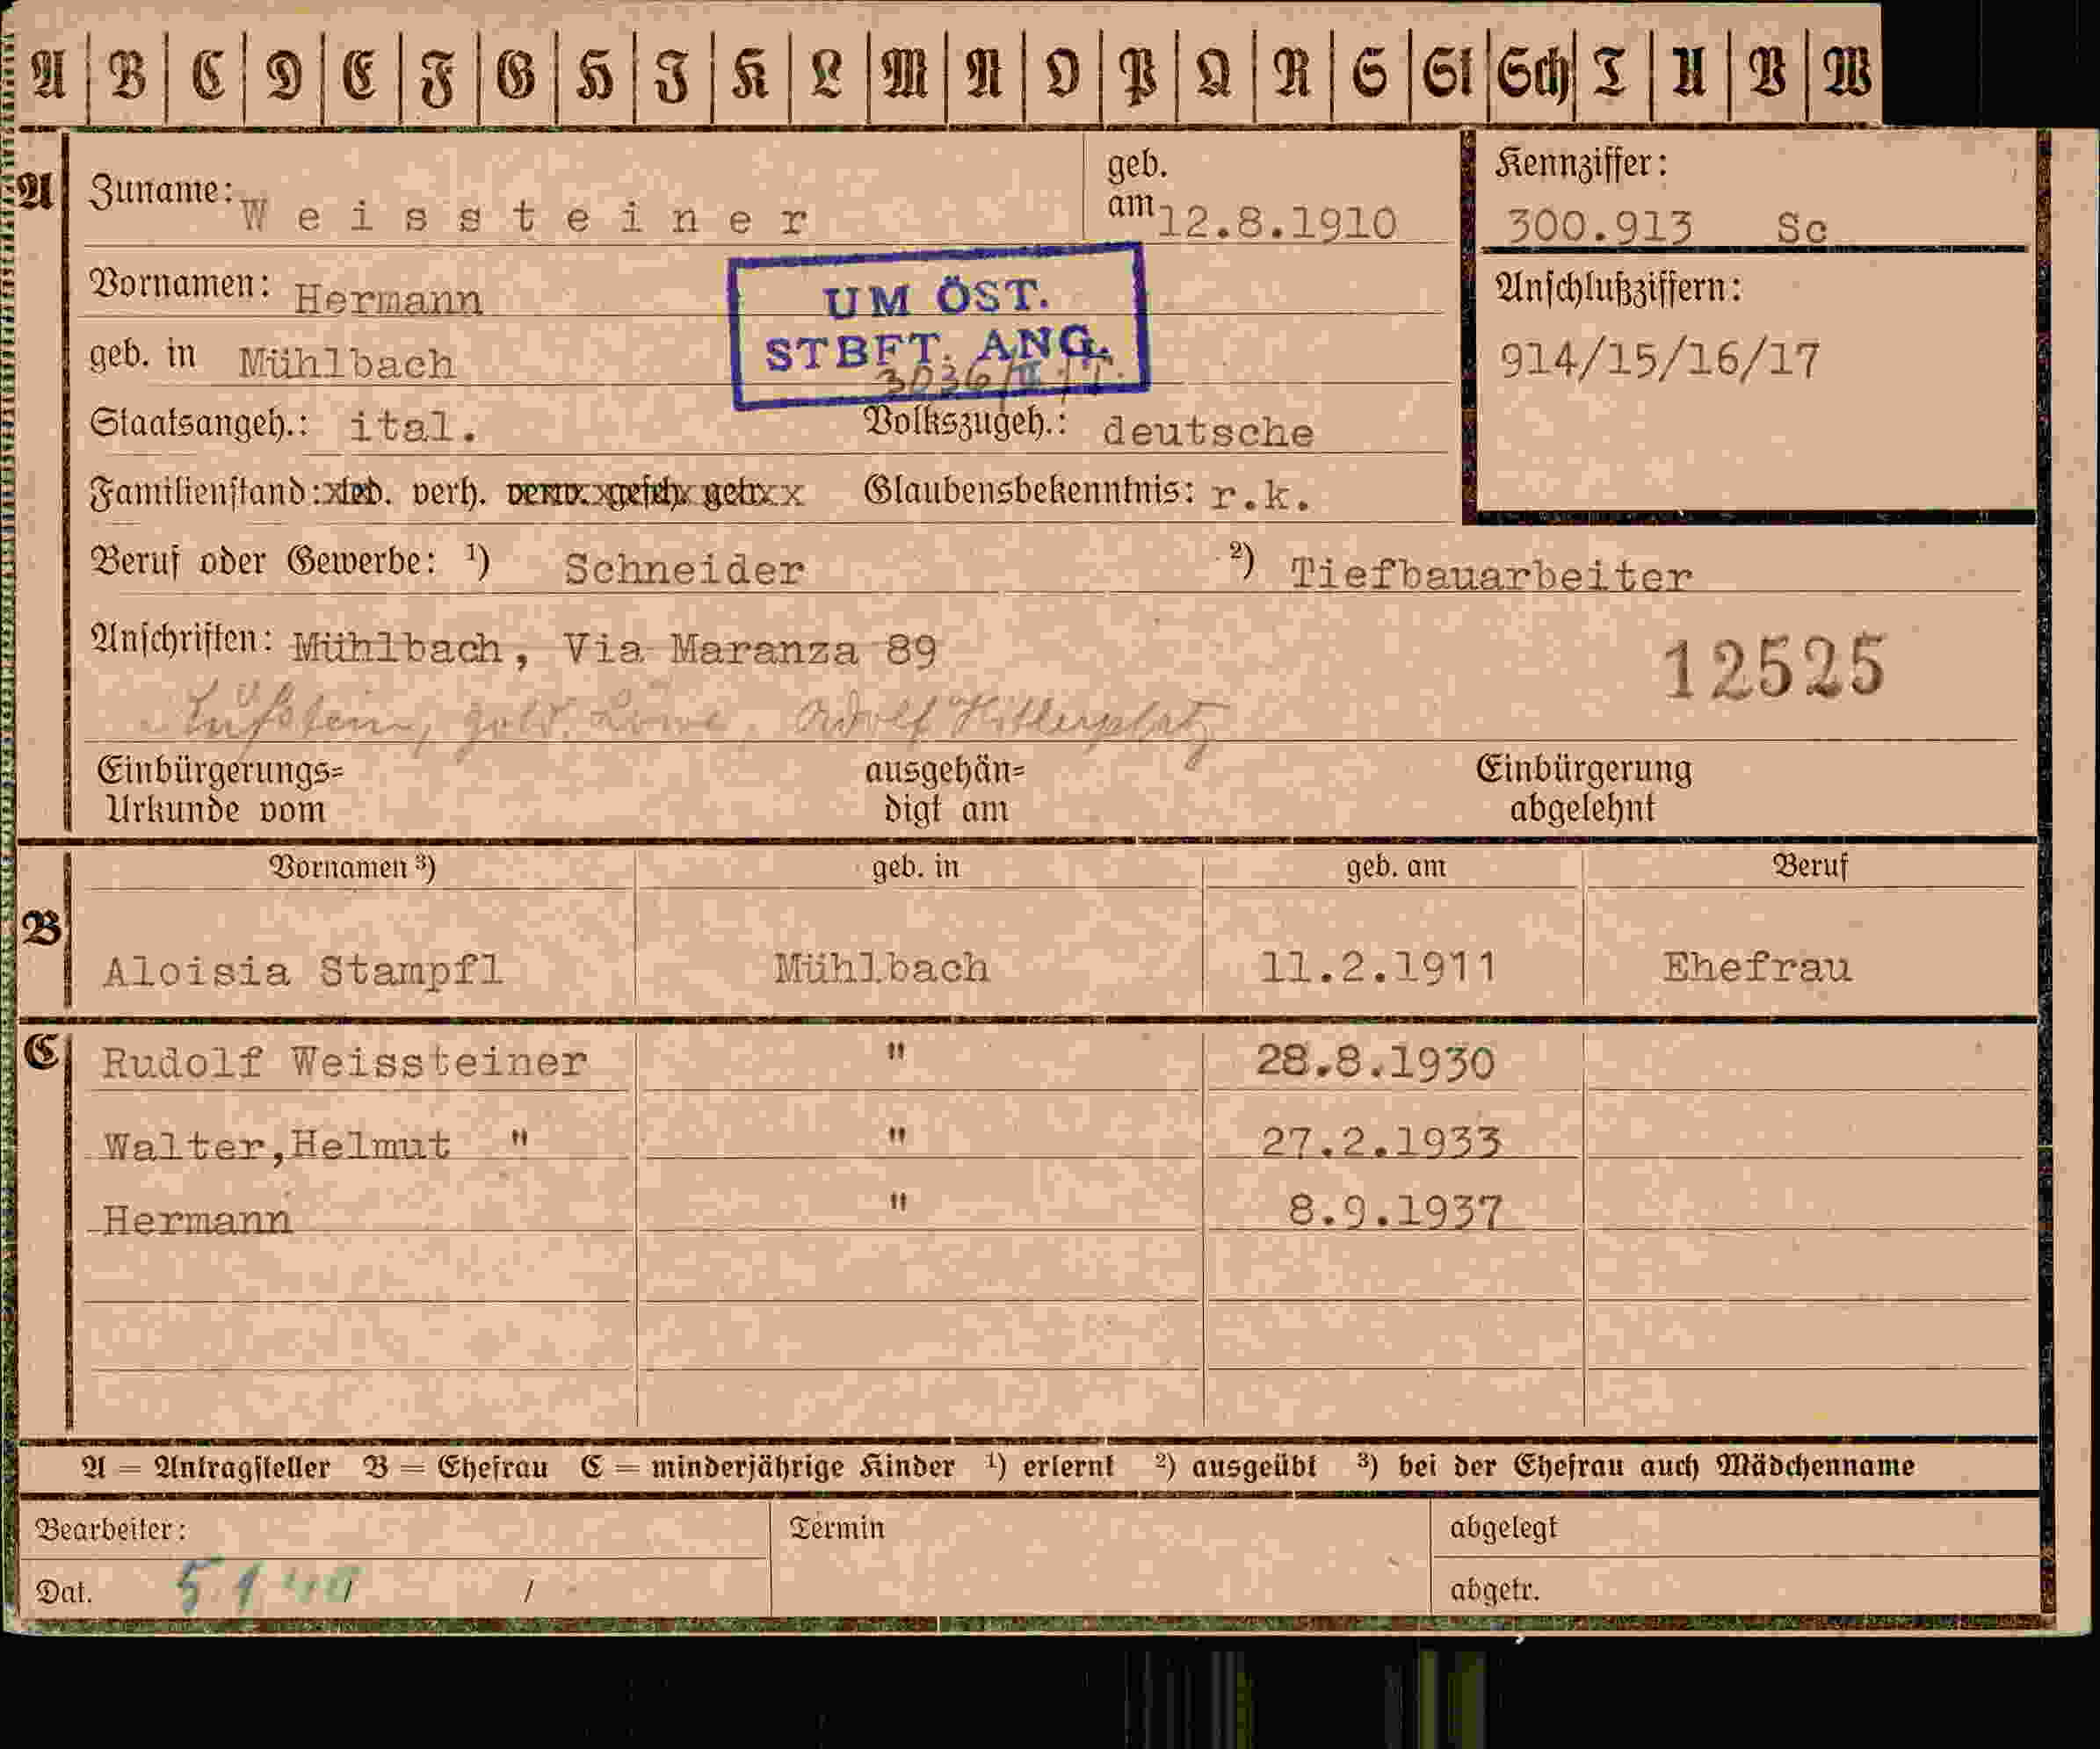 A B C D E F G H J K L M N O P Q R S St Sch T U V W
A
Zuname: Weissteiner
geb. am 12.8.1910
Kennziffer:
300.913 Sc
Vornamen: Hermann
UM ÖST.
STBFT. ANG.
3036/II
Anschlußziffern:
914/15/16/17
geb. in Mühlbach
Staatsangeh.: ital.
Volkszugeh.: deutsche
Familienstand: led. verh. verw. gesch. getr.
Glaubensbekenntnis: r.k.
Beruf oder Gewerbe: ¹) Schneider ²) Tiefbauarbeiter
Anschriften: Mühlbach, Via Maranza 89
12525
Kufstein, gold. Löwe, Adolf Hitlerplatz
Einbürgerungs=
Urkunde vom
ausgehän=
digt am
Einbürgerung
abgelehnt
Vornamen ³) geb. in geb. am Beruf
B
Aloisia Stampfl Mühlbach 11.2.1911 Ehefrau
C
Rudolf Weissteiner " 28.8.1930
Walter,Helmut " " 27.2.1933
Hermann " 8.9.1937
A = Antragsteller B = Ehefrau C = minderjährige Kinder ¹) erlernt ²) ausgeübt ³) bei der Ehefrau auch Mädchenname
Bearbeiter:
Termin
abgelegt
Dat. 5.1.40 / /
abgetr.